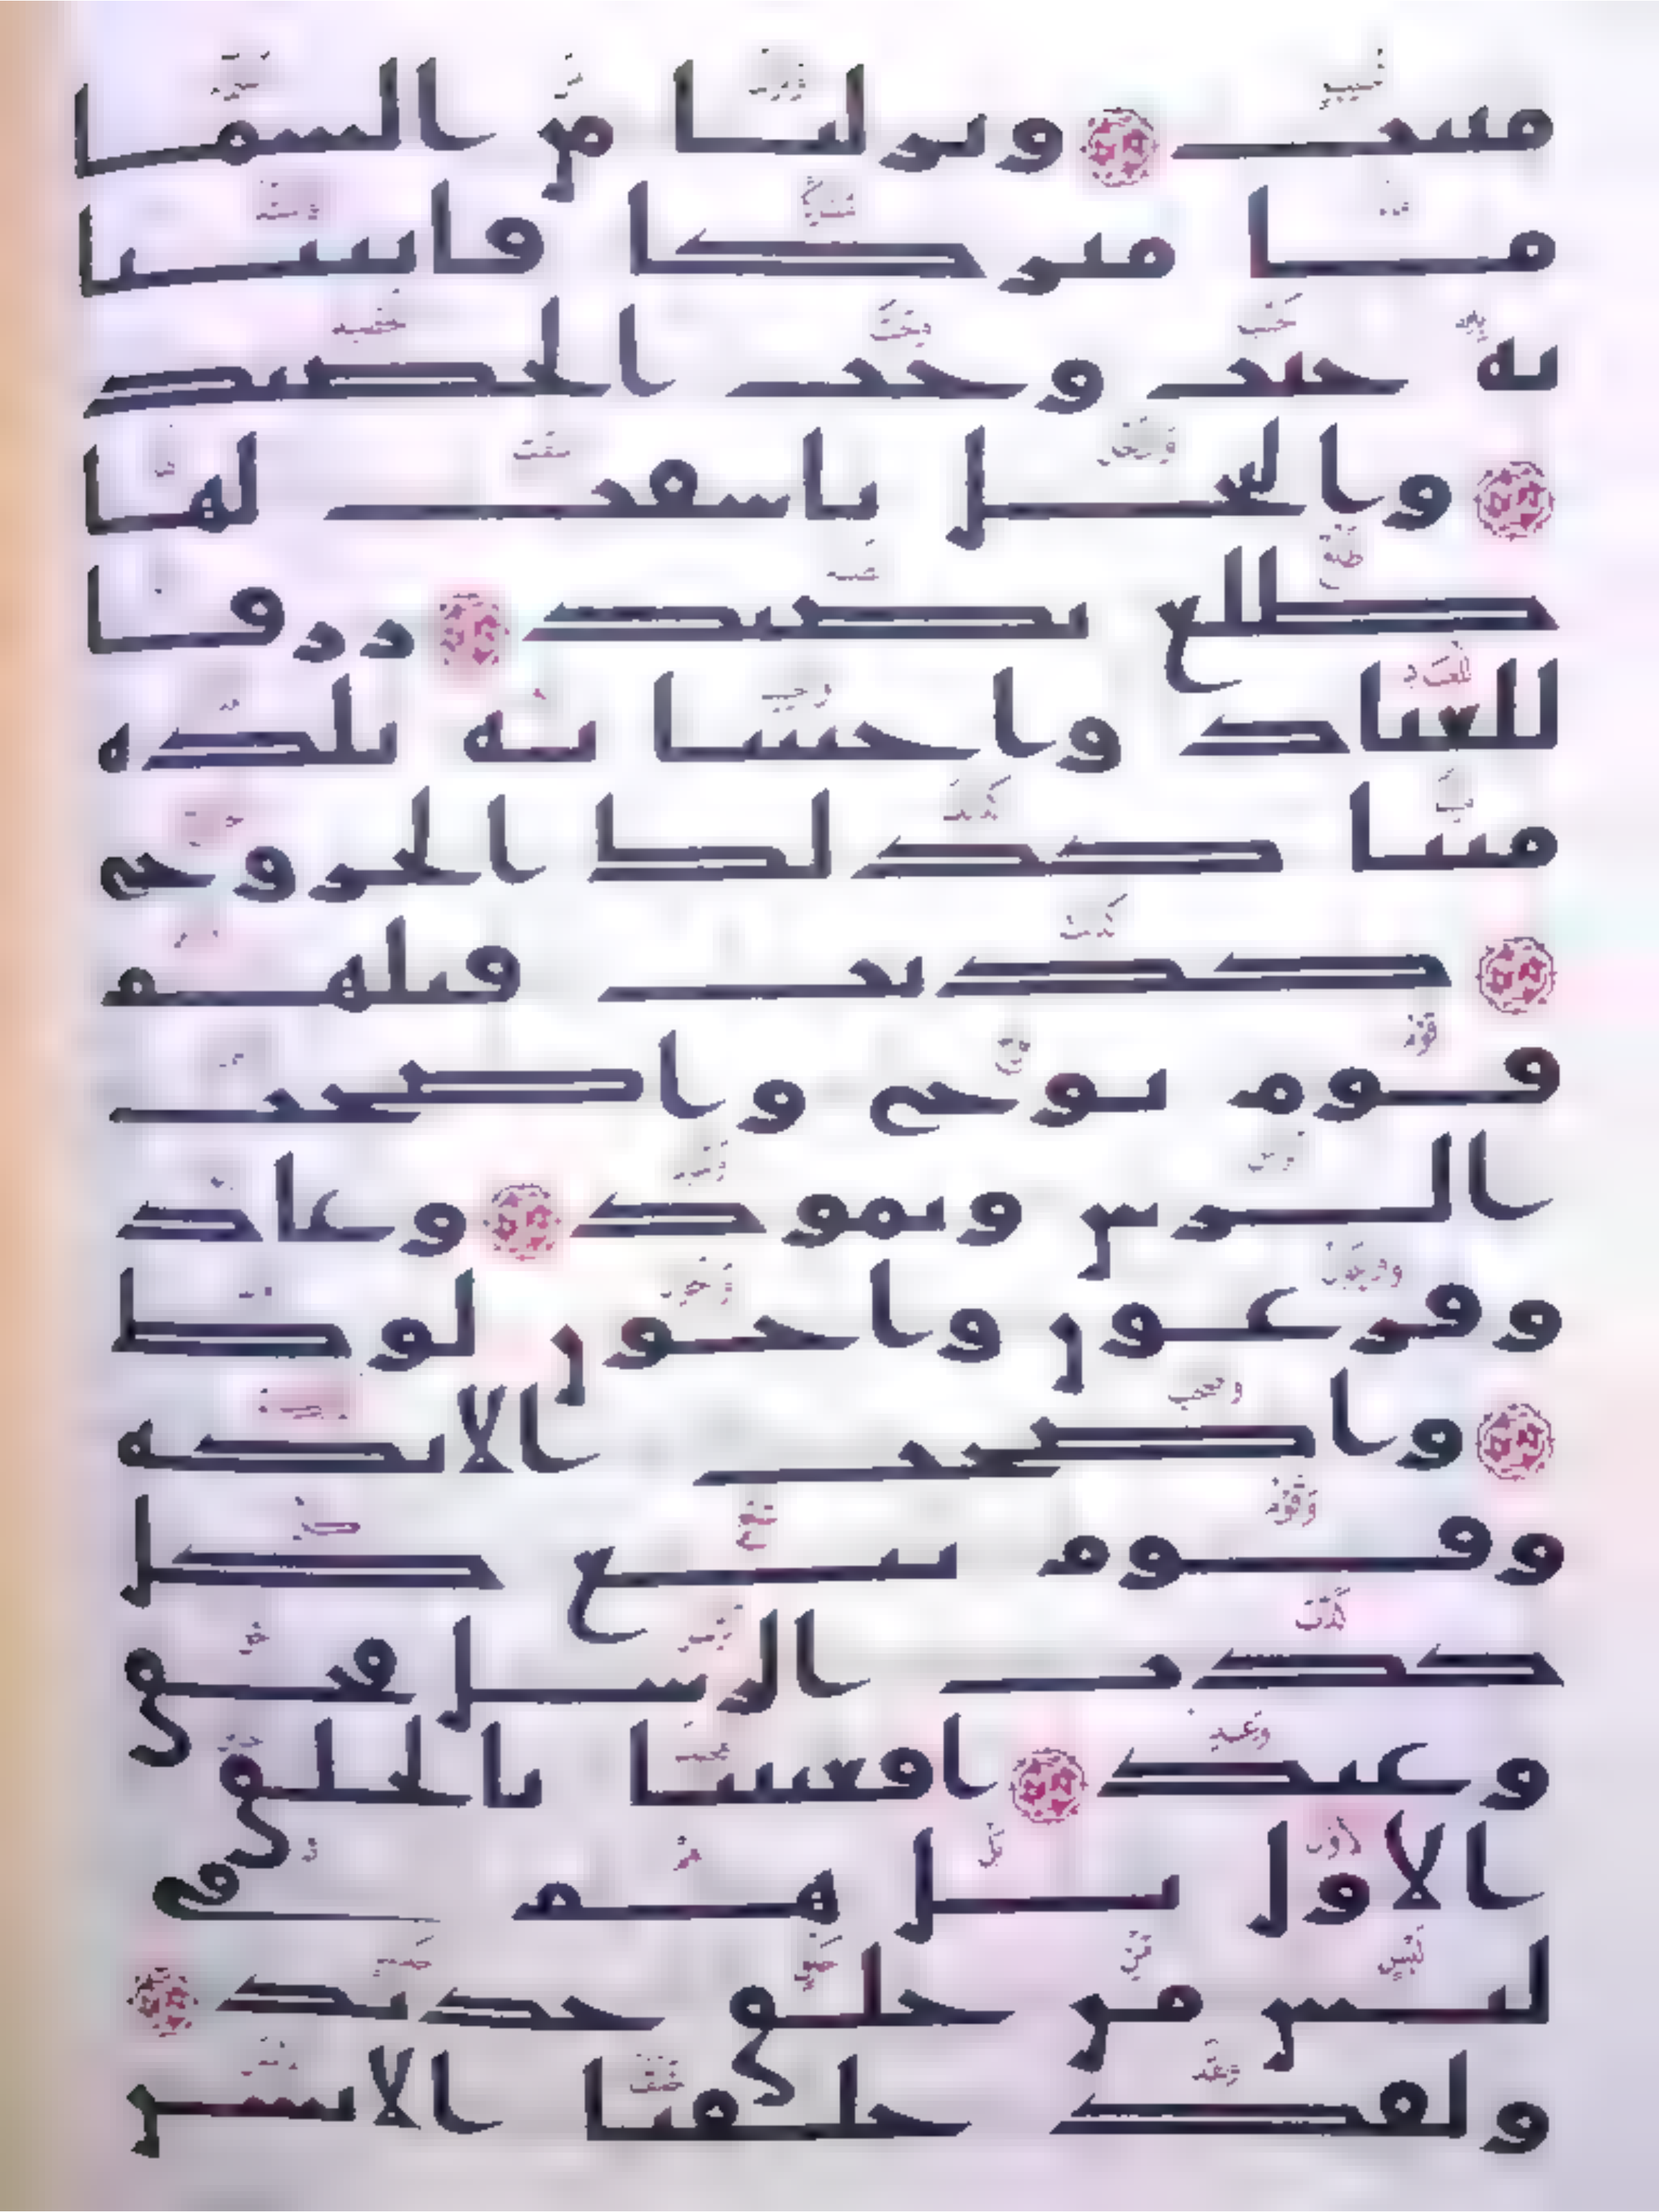 منيب ونزلنا من السما
ما مبركا فانبتنا
به جنت وحب الحصيد
والنخل باسقت لها
طلع نضيد رزقا
للعباد واحيينا به بلدة
ميتا كذلك الخروج
كذبت قبلهم
قوم نوح واصحب
الرس وثمود وعاد
وفرعون واخون لوط
واصحب الايكة
وقوم تبع كل
كذب الرسل فحق
وعيد افعيينا بالخلق
الاول بل هم في
لبس من خلق جديد
ولقد خلقنا الانسن